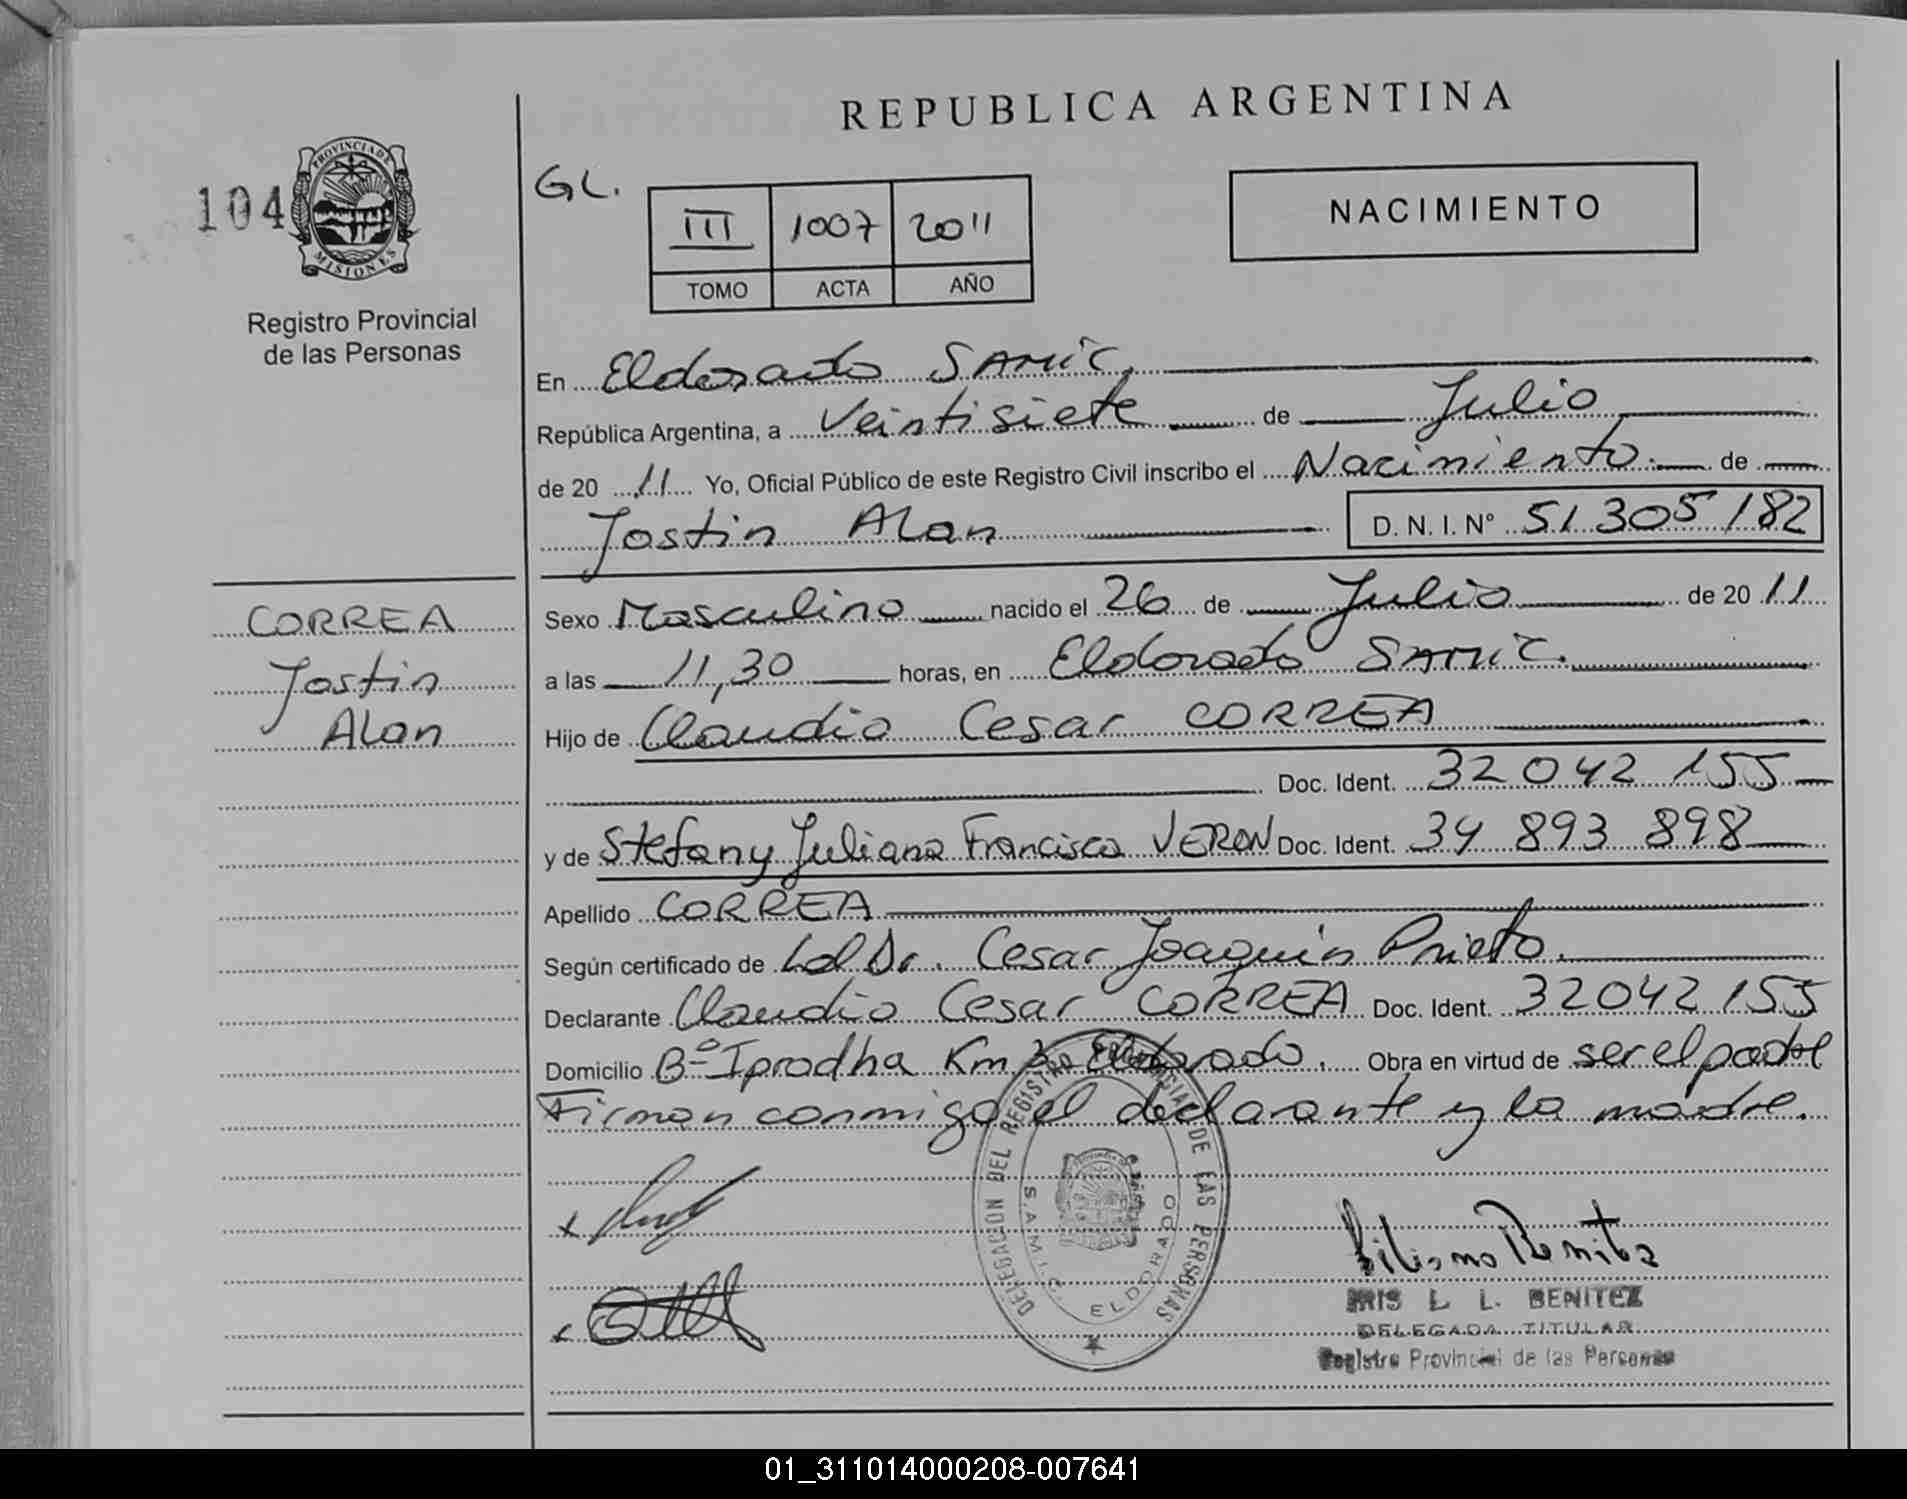 REPUBLICA ARGENTINA
104
PROVINCIA DE
MISIONES
Registro Provincial
de las Personas
GL.
III 1007 2011
TOMO ACTA AÑO
NACIMIENTO
En Eldorado SAMIC,
República Argentina, a Veintisiete de Julio
de 20 11 Yo, Oficial Público de este Registro Civil inscribo el Nacimiento de
Jostin Alan D. N. I. N° 51 305 182
CORREA
Jostin
Alan
Sexo Masculino nacido el 26 de Julio de 20 11
a las 11,30 horas, en Eldorado SAMIC.
Hijo de Claudio Cesar CORREA
Doc. Ident. 32 042 155
y de Stefany Juliana Francisca VERON Doc. Ident. 34 893 898
Apellido CORREA
Según certificado de Dr. Cesar Joaquin Prieto.
Declarante Claudio Cesar CORREA Doc. Ident. 32042155
Domicilio B° Iprodha Km Eldorado. Obra en virtud de ser el padre
Firman conmigo el declarante y la madre.
DELEGACION DEL REGISTRO PROVINCIAL DE LAS PERSONAS
S.A.M.I.C. ELDORADO
IRIS L. L. BENITEZ
DELEGADA TITULAR
Registro Provincial de las Personas
01_311014000208-007641